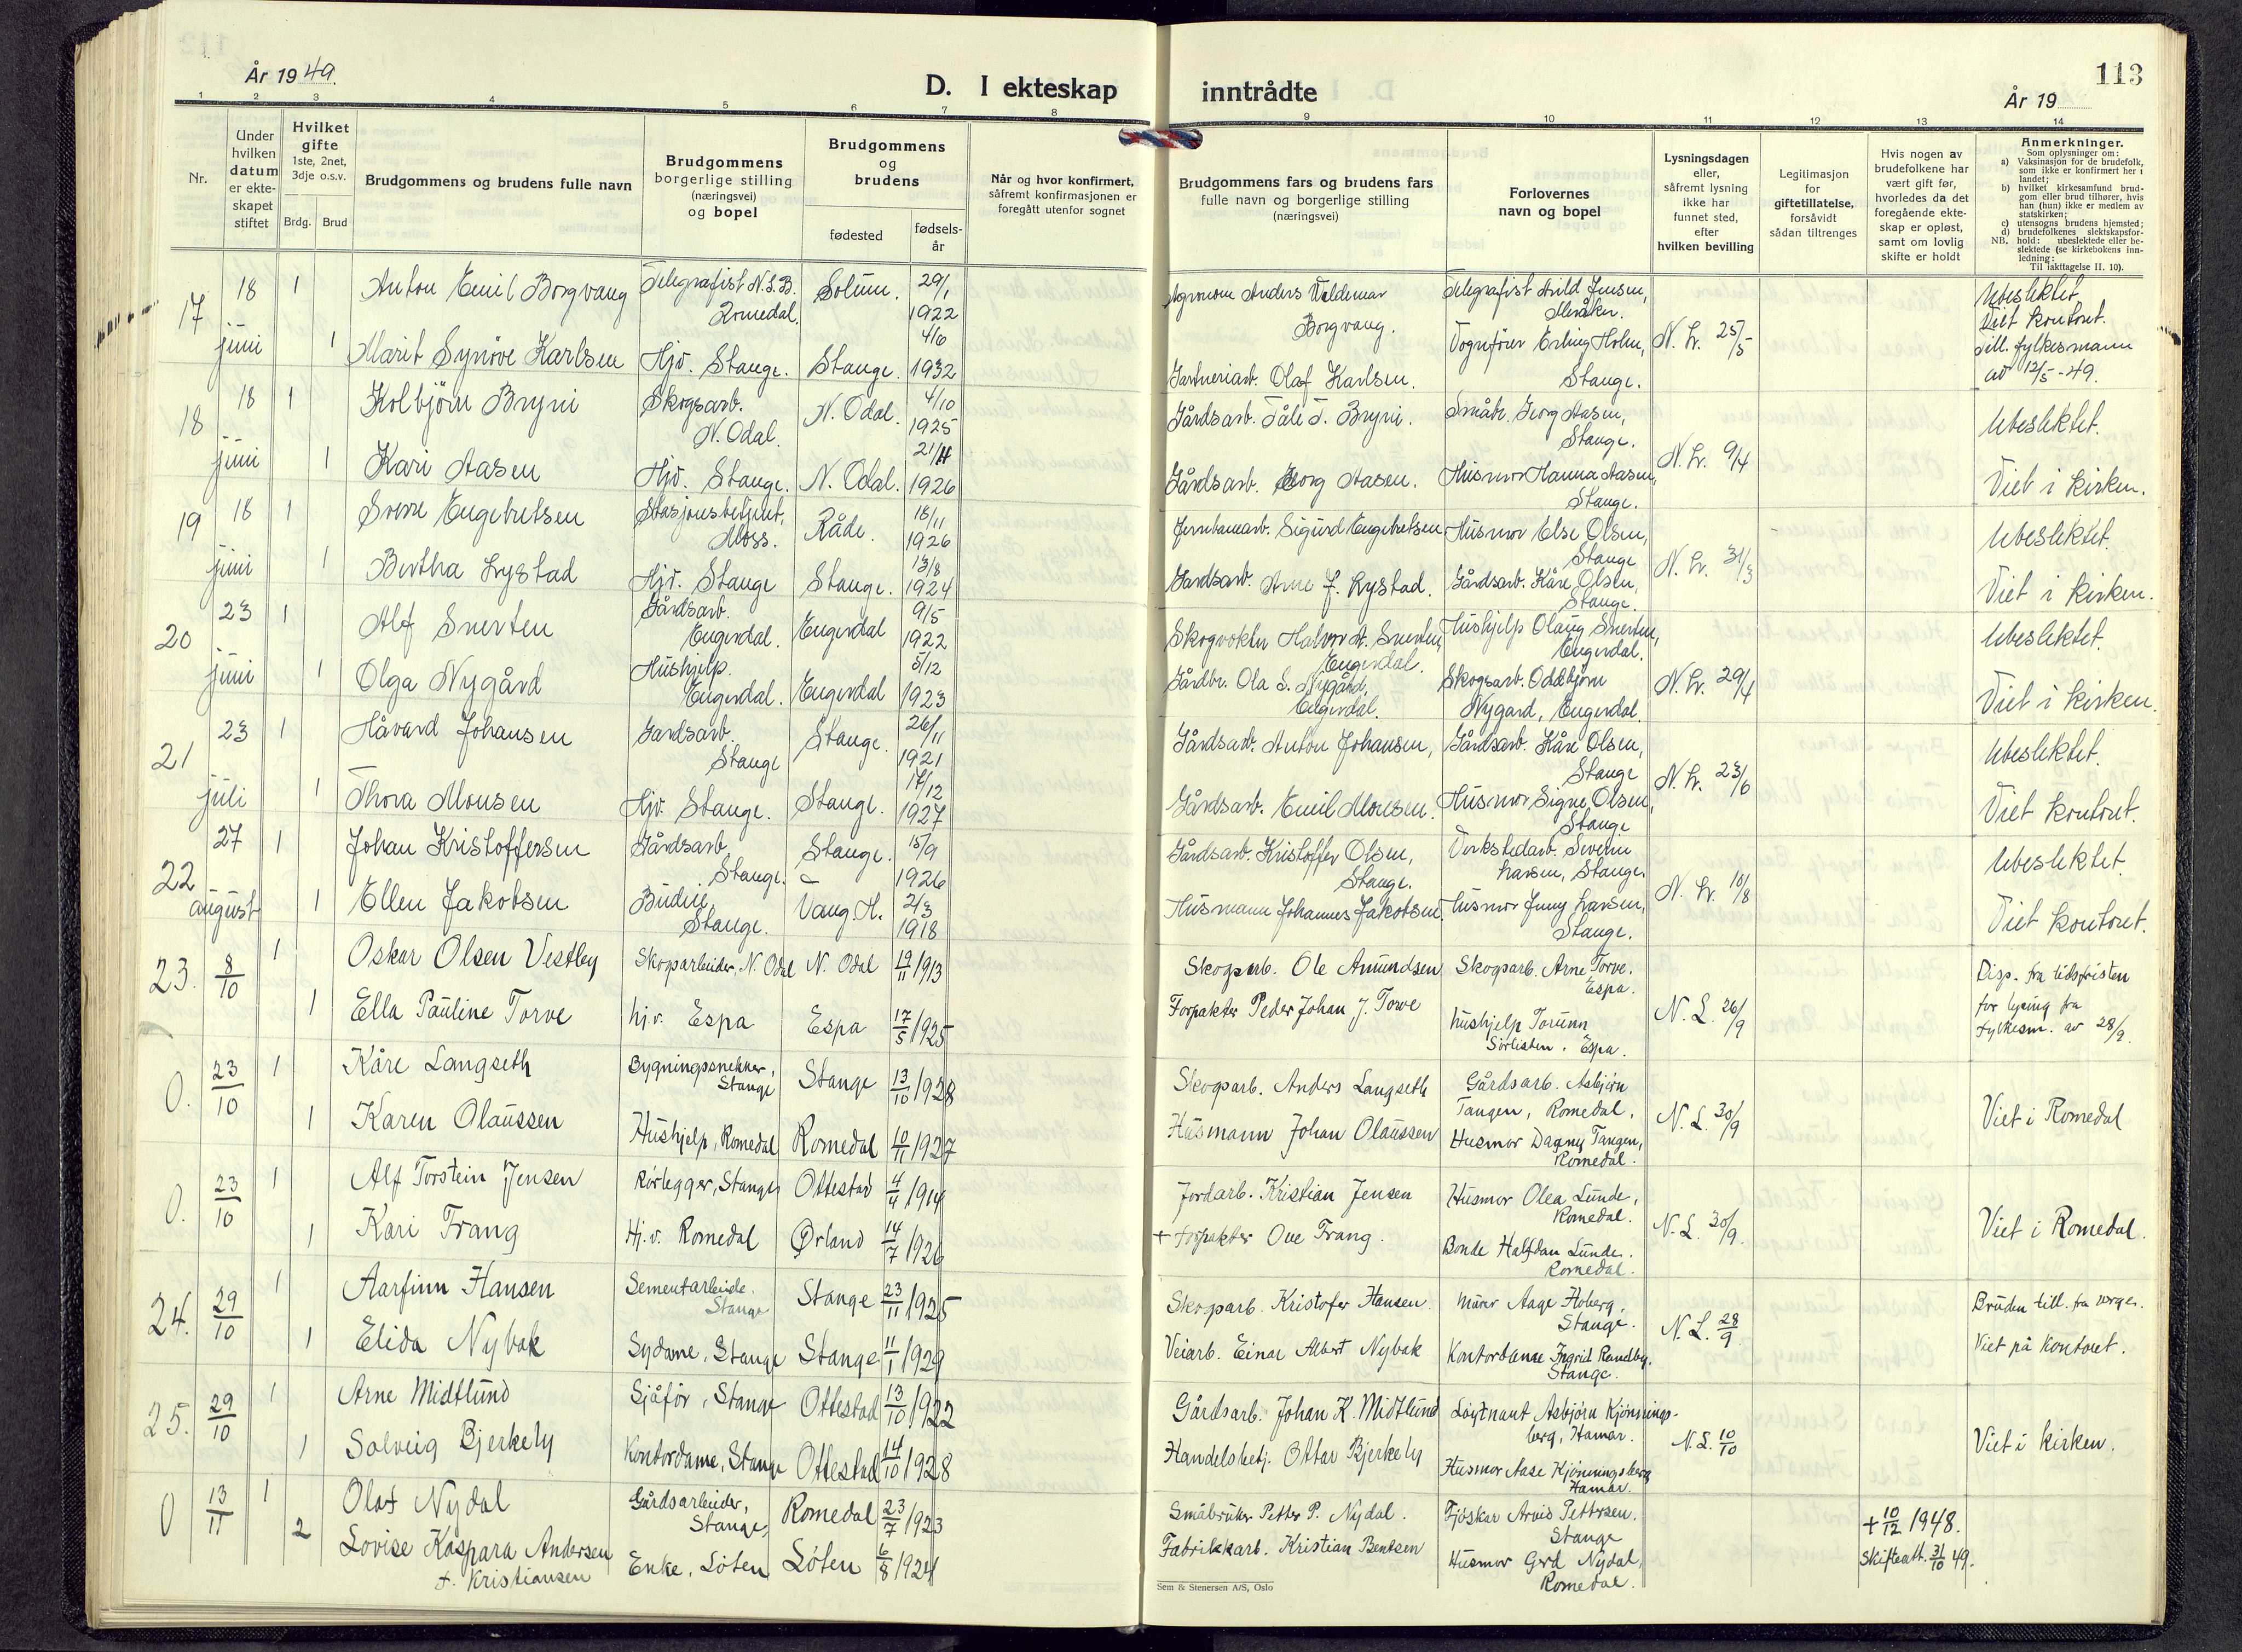 År 1949.
D. I ekteskap
inntrådte
113
År 19
1 2 3 4 5 6 7 8 9 10 11 12 13 14
Nr.
Under hvilken datum er ekteskapet stiftet
Hvilket gifte
1ste, 2net, 3dje o.s.v.
Brdg. Brud
Brudgommens og brudens fulle navn
Brudgommens borgerlige stilling (næringsvei) og bopel
Brudgommens og brudens
fødested
fødsels-år
Når og hvor konfirmert, såfremt konfirmasjonen er foregått utenfor sognet
Brudgommens fars og brudens fars fulle navn og borgerlige stilling (næringsvei)
Forlovernes navn og bopel
Lysningsdagen eller, såfremt lysning ikke har funnet sted, efter hvilken bevilling
Legitimasjon for giftetillatelse, forsåvidt sådan tiltrenges
Hvis nogen av brudefolkene har vært gift før, hvorledes da det foregående ekteskap er opløst, samt om lovlig skifte er holdt
Anmerkninger.
Som oplysninger om:
a) Vaksinasjon for de brudefolk, som ikke er konfirmert her i landet;
b) hvilket kirkesamfund brudgom eller brud tilhører, hvis han (hun) ikke er medlem av statskirken;
c) utensogns brudens hjemsted;
d) brudefolkenes slektskapsforhold: ubeslektede eller beslektede (se kirkebokens innledning:
NB.
Til iakttagelse II. 10).
17 18 juni 1 Anton Emil Borgvang Telegrafist N.S.B. Romedal. Solum. 29/1 1922 Agronom Anders Valdemar Borgvang. Telegrafist Arild Jensen, Meråker. N. Lr. 25/5 Ubeslektet. Viet kontoret. till. fylkesmann av 12/5 - 49.
1 Marit Synöve Karlsen Hjv. Stange. Stange. 4/6 1932 Gartneriarb. Olaf Karlsen. Vognfører Erling Holm, Stange.
18 18 juni 1 Kolbjörn Bryni Skogsarb. N. Odal. N. Odal. 4/10 1925 Gårdsarb. Påle T. Bryni. Småbr. Georg Aasen, Stange. N. Lr. 9/4 Ubeslektet.
1 Kari Aasen Hjv. Stange. N. Odal. 21/11 1926 Gårdsarb. Georg Aasen. Husmor Hanna Aasen, Stange. Viet i kirken.
19 18 juni 1 Sverre Engebretsen Stasjonsbetjent, Moss. Råde. 18/11 1926 Jernbanearb. Sigurd Engebretsen Husmor Else Olsen, Stange N. Lr. 31/3 Ubeslektet.
1 Bertha Lystad Hjv. Stange Stange. 13/8 1924 Gardsarb. Arne J. Lystad. Gårdsarb. Kåre Olsen, Stange. Viet i kirken.
20 23 juni 1 Alf Snerten Gårdsarb. Engerdal. Engerdal 9/5 1922 Skogvokter Halvor A. Snerten, Engerdal. Hushjelp Olaug Snerten, Engerdal. N. Lr. 29/4 Ubeslektet.
1 Olga Nygård Hushjelp. Engerdal. Engerdal 5/12 1923 Gårdbr. Ola S. Nygård, Engerdal. Skogsarb. Oddbjörn Nygard, Engerdal. Viet i kirken.
21 23 juli 1 Håvard Johansen Gardsarb. Stange Stange. 26/11 1921 Gårdsarb. Anton Johansen, Gårdsarb. Kåre Olsen, Stange N. Lr. 23/6 Ubeslektet.
1 Thora Monsen Hjv. Stange. Stange. 14/12 1927 Gårdsarb. Emil Monsen. Husmor Signe Olsen, Stange Viet kontoret.
22 27 august 1 Johan Kristoffersen Gårdsarb. Stange. Stange. 15/9 1926 Gårdsarb. Kristoffer Olsen, Stange. Verkstedarb. Severin Larsen, Stange. N. Lr. 10/8 Ubeslektet.
1 Ellen Jakobsen Budeie, Stange. Vang. H. 2/3 1918 Husmann Johannes Jakobsen. Husmor Jenny Larsen, Stange. Viet kontoret.
23. 8/10 1 Oskar Olsen Vestby Skogarbeider, N. Odal N. Odal 19/11 1913 Skogarb. Ole Amundsen Skogarb. Arne Torve. Espa. N. L. 26/9 Disp. fra tidsfristen for lysing fra fylkesm. av 28/9.
1 Ella Pauline Torve hj.v. Espa Espa 17/5 1925 Forpakter Peder Johan J. Torve hushjelp Torunn Sörlisten. Espa.
0. 23/10 1 Kåre Langseth Bygningssnekker, Stange Stange 13/10 1928 Skogarb. Anders Langseth Gårdsarb. Asbjørn Tangen, Romedal, N. L. 30/9 Viet i Romedal
1 Karen Olaussen Hushjelp, Romedal Romedal 10/11 1927 Husmann Johan Olaussen Husmor Dagny Tangen, Romedal.
0. 23/10 1 Alf Torstein Jensen Rørlegger, Stange Ottestad 4/4 1914 Jordarb. Kristian Jensen Husmor Olea Lunde, Romedal. N. L. 30/9. Viet i Romedal.
1 Kari Trang Hj.v. Romedal Ørland 14/7 1926 + forpakter Ove Trang. Bonde Halfdan Lunde. Romedal.
24. 29/10 1 Aarfinn Hansen Sementarbeide. Stange Stange 23/11 1925 Skogarb. Kristofer Hansen. Murer Aage Hoberg, Stange. N. L. 28/9. Bruden till. fra verge.
1 Elida Nybak Sydame, Stange Stange 11/1 1929 Veiarb. Einar Albert Nybak Kontordame Ingrid Randby. Stange. Viet på kontoret.
25. 29/10 1 Arne Midtlund Sjåför, Stange Ottestad 13/10 1922 Gårdsarb. Johan K. Midtlund Löytnant Asbjørn Kjønnings-berg, Hamar. N. L. 10/10 Viet i kirken.
1 Solveig Bjerkely Kontordame, Stange Ottestad 14/10 1928 Handelsbetj. Ottar Bjerkely Husmor Aase Kjønningsberg Hamar.
0 13/11 1 Olaf Nydal Gårdsarbeider, Stange, Romedal 23/7 1923 Småbruker Petter P. Nydal. Fjøskar Arvid Pettersen. Stange + 10/12 1948.
2 Lovise Kaspara Andersen f. Kristiansen Enke, Löten Løten 6/8 1924 Fabrikkarb. Kristian Bentsen Husmor Gerd Nydal, Romedal. Skifteatt. 31/10 49.
Sem & Stenersen A/S, Oslo